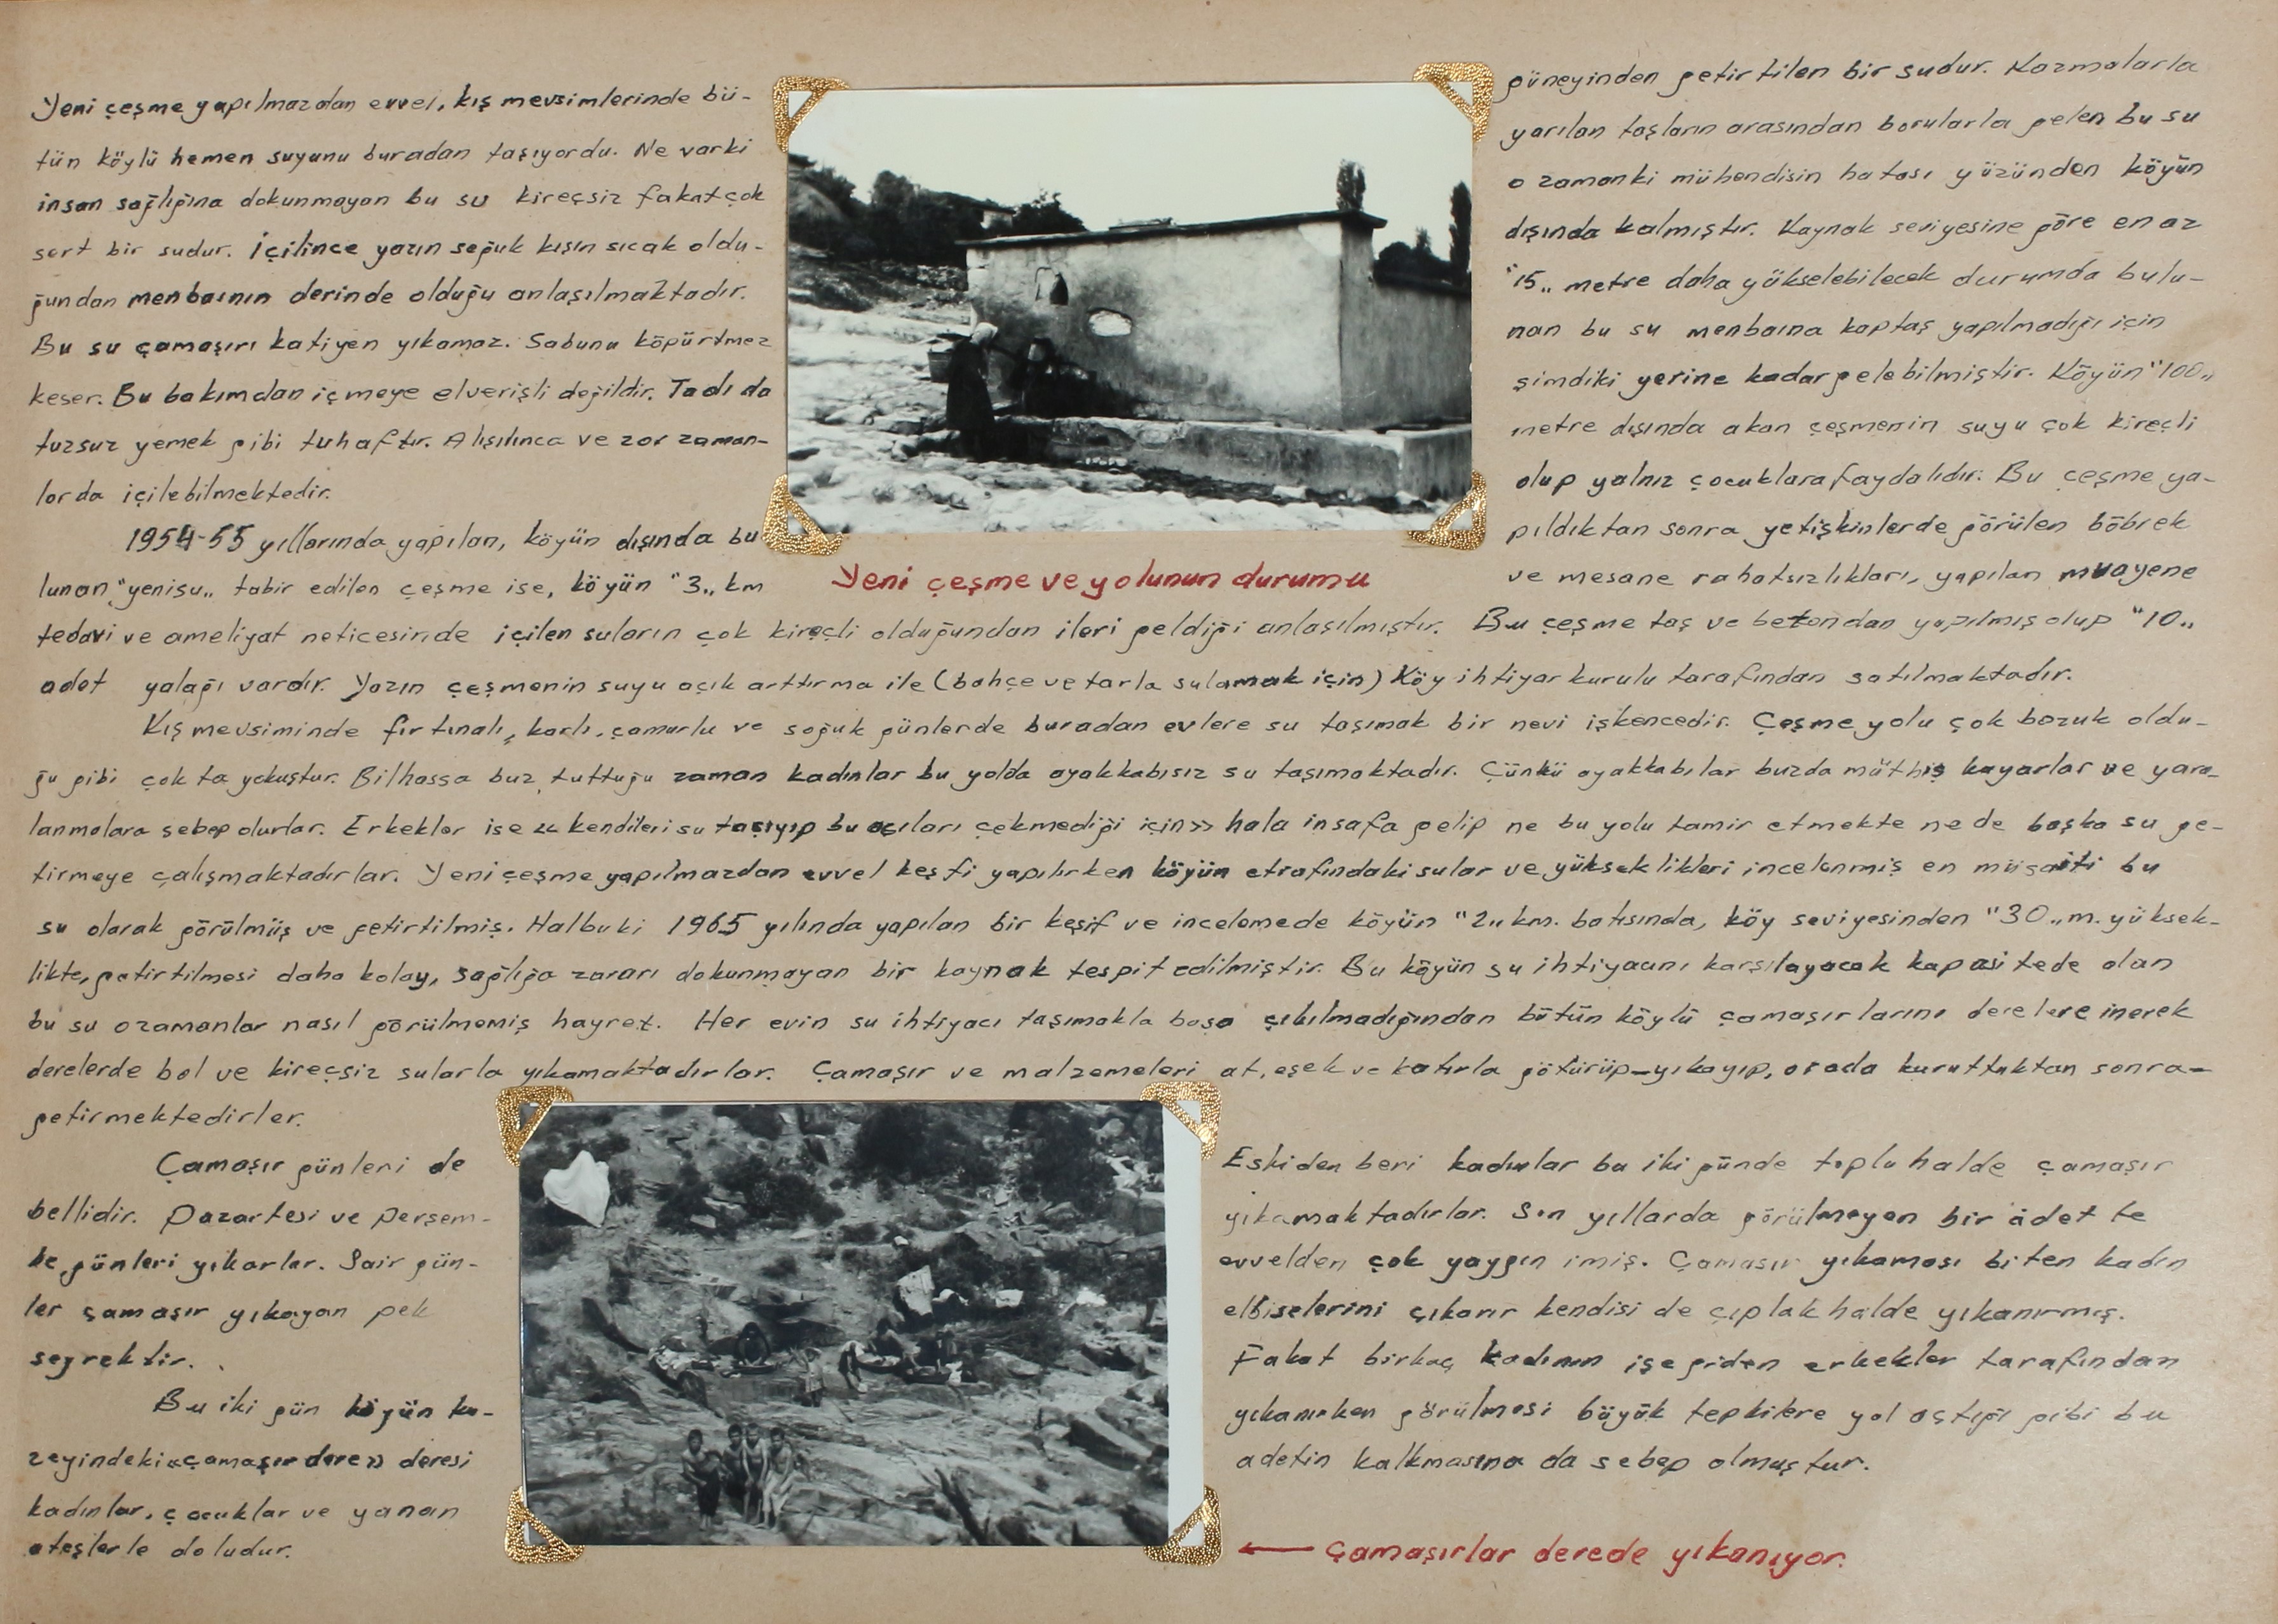 Yeni çeşme yapılmazdan evvel, kış mevsimlerinde bü-
tün köylü hemen suyunu buradan taşıyordu. Ne varki
insan sağlığına dokunmayan bu su kireçsiz fakat çok
sert bir sudur. İçilince yazın soğuk kışın sıcak oldu-
ğundan menbaının derinde olduğu anlaşılmaktadır.
Bu su çamaşırı katiyen yıkamaz. Sabunu köpürtmez
keser. Bu bakımdan içmeye elverişli değildir. Tadı da
tuzsuz yemek gibi tuhaftır. Alışılınca ve zor zaman-
lorda içilebilmektedir.
1954-55 yıllarında yapılan, köyün dışında bu
lunan "yenisu" tabir edilen çeşme ise, köyün "3" km
güneyinden getirtilen bir sudur. Kazmalarla
yarılan taşların arasından borularla gelen bu su
o zamanki mühendisin hatası yüzünden köyün
dışında kalmıştır. Kaynak seviyesine göre en az
"15" metre daha yükselebilecek durumda bulu-
nan bu su menbaına kaptaş yapılmadığı için
şimdiki yerine kadar gelebilmiştir. Köyün "100"
metre dışında akan çeşmenin suyu çok kireçli
olup yalnız çocuklara faydalıdır. Bu çeşme ya-
pıldıktan sonra yetişkinlerde görülen böbrek
ve mesane rahatsızlıkları, yapılan muayene
Yeni çeşme ve yolunun durumu
tedavi ve ameliyat neticesinde içilen suların çok kireçli olduğundan ileri geldiği anlaşılmıştır. Bu çeşme taş ve betondan yapılmış olup "10"
adet yalağı vardır. Yazın çeşmenin suyu açık arttırma ile (bahçe ve tarla sulamak için) Köy ihtiyar kurulu tarafından satılmaktadır.
Kış mevsiminde fırtınalı, karlı, çamurlu ve soğuk günlerde buradan evlere su taşımak bir nevi işkencedir. Çeşme yolu çok bozuk oldu-
ğu gibi çok ta yokuştur. Bilhassa buz tuttuğu zaman kadınlar bu yolda ayakkabısız su taşımaktadır. Çünkü ayakkabılar buzda müthiş kayarlar ve yara-
lanmalara sebep olurlar. Erkekler ise << kendileri su taşıyıp bu acıları çekmediği için >> hala insafa gelip ne bu yolu tamir etmekte ne de başka su ge-
tirmeye çalışmaktadırlar. Yeni çeşme yapılmazdan evvel keşfi yapılırken köyün etrafındaki sular ve yükseklikleri incelenmiş en müsaiti bu
su olarak görülmüş ve getirtilmiş. Halbuki 1965 yılında yapılan bir keşif ve incelemede köyün "2" km. batısında, köy seviyesinden "30" m. yüksek-
likte, getirtilmesi daha kolay, sağlığa zararı dokunmayan bir kaynak tespit edilmiştir. Bu köyün su ihtiyacını karşılayacak kapasitede olan
bu su ozamanlar nasıl görülmemiş hayret. Her evin su ihtiyacı taşımakla başa çıkılmadığından bütün köylü çamaşırlarını derelere inerek
derelerde bol ve kireçsiz sularla yıkamaktadırlar. Çamaşır ve malzemeleri at, eşek ve katırla götürüp-yıkayıp, orada kuruttuktan sonra-
getirmektedirler.
Çamaşır günleri de
bellidir. Pazartesi ve perşem-
be günleri yıkarlar. Sair gün-
ler çamaşır yıkayan pek
seyrektir.
Bu iki gün köyün ku-
zeyindeki «çamaşır dere» deresi
kadınlar, çocuklar ve yanan
ateşlerle doludur.
Eskiden beri kadınlar bu iki günde toplu halde çamaşır
yıkamaktadırlar. Son yıllarda görülmeyen bir âdet te
evvelden çok yaygın imiş. Çamaşır yıkaması biten kadın
elbiselerini çıkarır kendisi de çıplak halde yıkanırmış.
Fakat birkaç kadının işe giden erkekler tarafından
yıkanırken görülmesi büyük tepkilere yol açtığı gibi bu
adetin kalkmasına da sebep olmuştur.
← Çamaşırlar derede yıkanıyor.